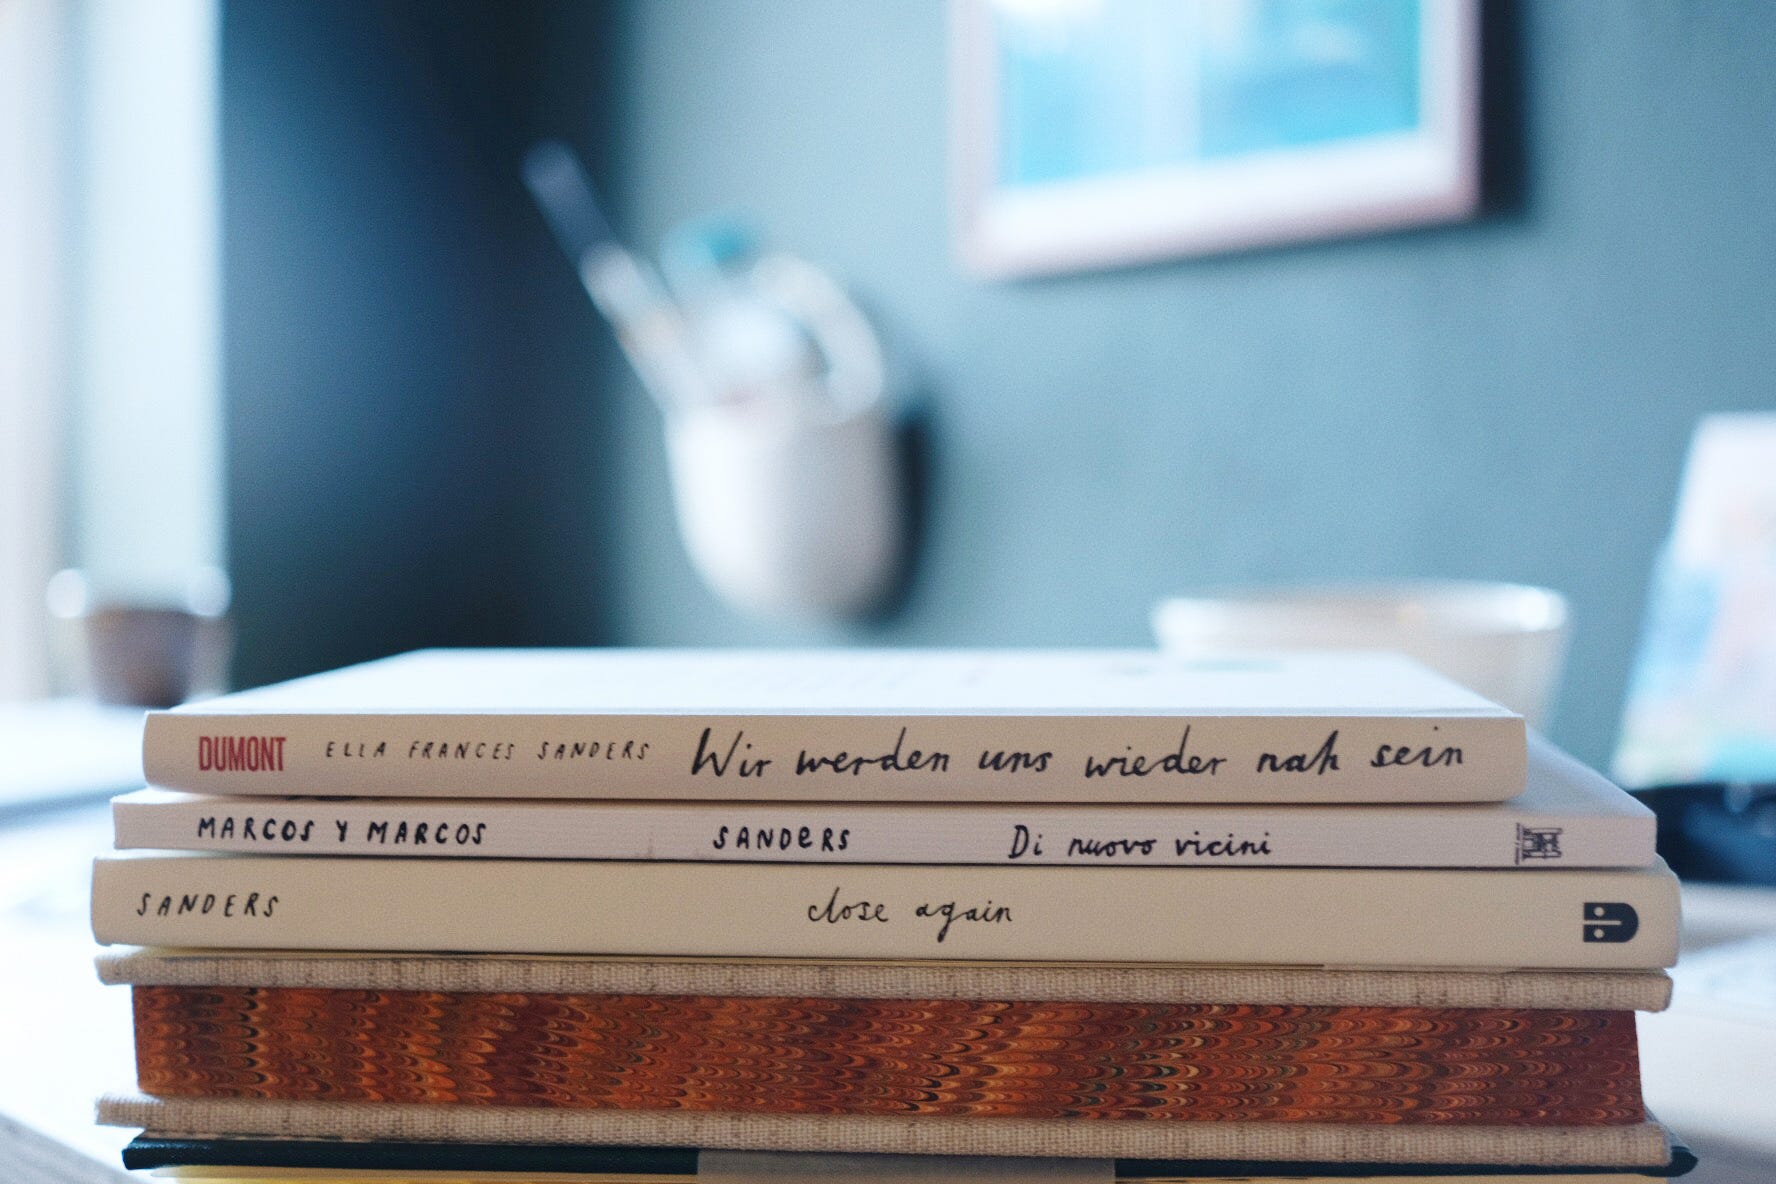 DUMONT ELLA FRANCES SANDERS Wir werden uns wieder nah sein
MARCOS Y MARCOS SANDERS Di nuovo vicini
SANDERS close again